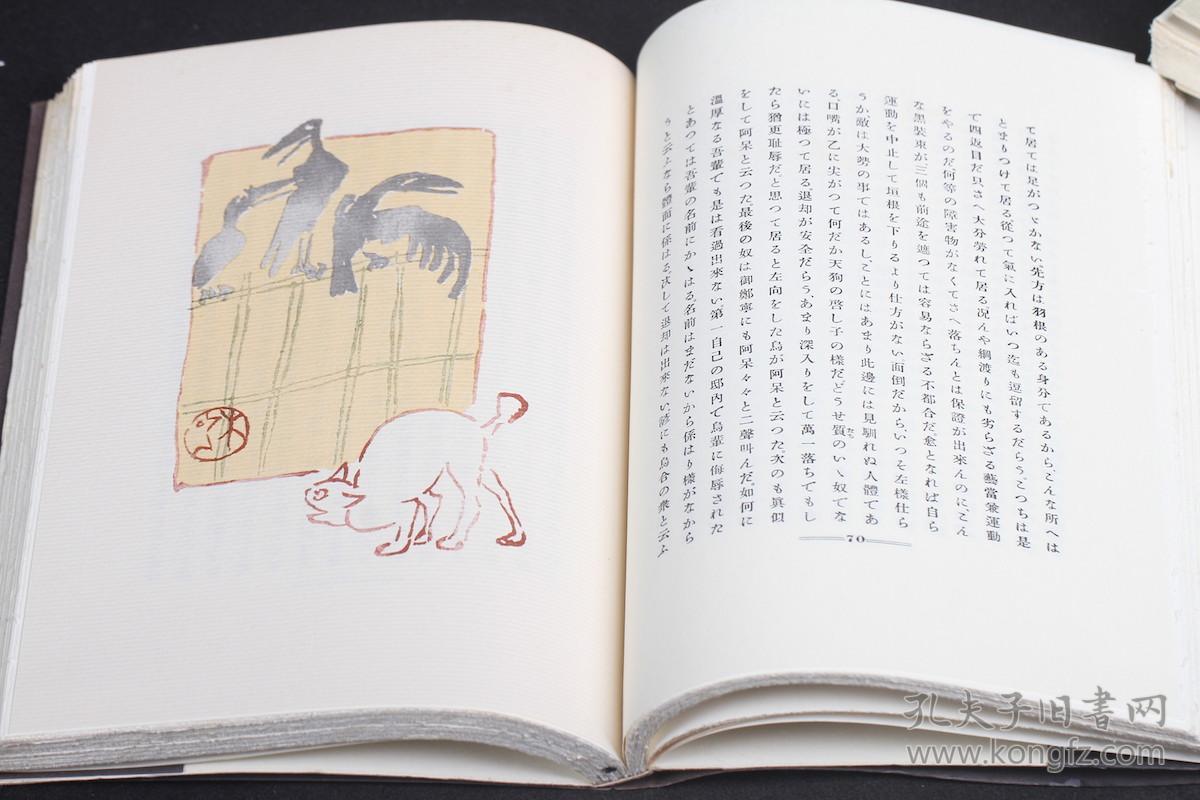 て居ては足がつゞかない先方は羽根のある身分であるから、こんな所へは
とまりつけて居る從つて氣に入ればいつ迄も逗留するだらう、こつちは是
で四返目だ只さへ大分勞れて居る況んや綱渡りにも劣らざる藝當兼運動
をやるのだ何等の障害物がなくてさへ落ちんとは保證が出來んのに、こん
な黑裝束が、三個も前途を遮つては容易ならざる不都合だ、愈となれば自ら
運動を中止して垣根を下りるより仕方がない面倒だから、いつそ左樣仕ら
うか、敵は大勢の事ではあるし、ことにはあまり此邊には見馴れぬ人體であ
る、口嘴が乙に尖がつて何だか天狗の啓し子の樣だどうせ質のいゝ奴でな
いには極つて居る、退却が安全だらう、あまり深入りをして萬一落ちでもし
たら猶更耻辱だ、と思つて居ると左向をした烏が阿呆と云つた、次のも眞似
をして阿呆と云つた最後の奴は御鄭寧にも阿呆々々と二聲叫んだ。如何に
溫厚なる吾輩でも是は看過出來ない、第一自己の邸內で烏輩に侮辱された
とあつては吾輩の名前にかゝはる、名前はまだないから係はり樣がなから
うと云ふなら體面に係はる、決して退却は出來ない諺にも烏合の衆と云ふ
70
孔夫子旧書网
www.kongfz.com